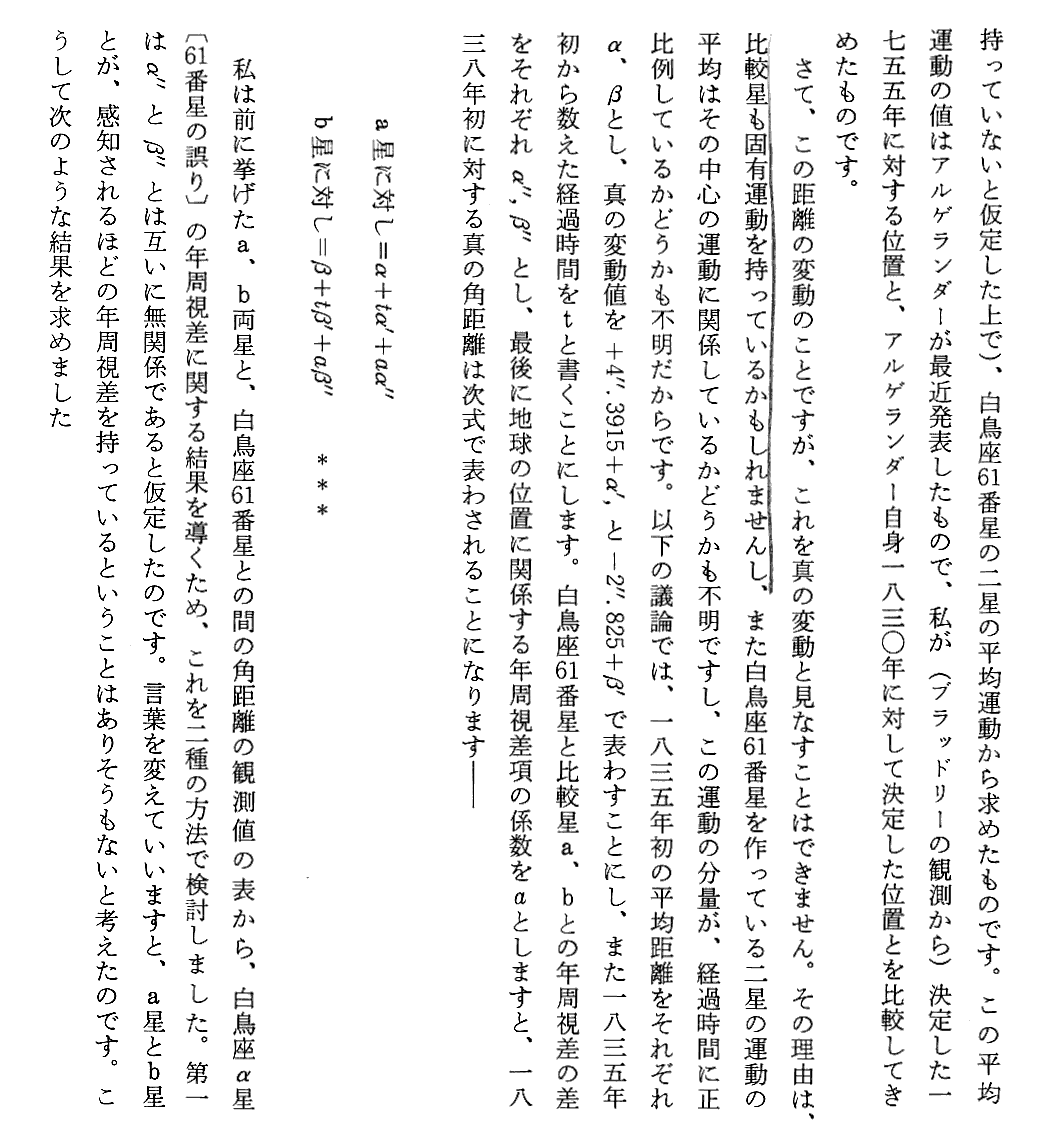 持っていないと仮定した上で)、白鳥座61番星の二星の平均運動から求めたものです。この平均
運動の値はアルゲランダーが最近発表したもので、私が(ブラッドリーの観測から)決定した一
七五五年に対する位置と、アルゲランダー自身一八三〇年に対して決定した位置とを比較してき
めたものです。
さて、この距離の変動のことですが、これを真の変動と見なすことはできません。その理由は、
比較星も固有運動を持っているかもしれませんし、また白鳥座61番星を作っている二星の運動の
平均はその中心の運動に関係しているかどうかも不明ですし、この運動の分量が、経過時間に正
比例しているかどうかも不明だからです。以下の議論では、一八三五年初の平均距離をそれぞれ
α、βとし、真の変動値を +4″.3915+α′, と −2″.825+β′ で表わすことにし、また一八三五年
初から数えた経過時間をtと書くことにします。白鳥座61番星と比較星a、bとの年周視差の差
をそれぞれ α″, β″ とし、最後に地球の位置に関係する年周視差項の係数をaとしますと、一八
三八年初に対する真の角距離は次式で表わされることになります——
a星に対し=α+tα′+aα″
b星に対し=β+tβ′+aβ″ ＊＊＊
私は前に挙げたa、b両星と、白鳥座61番星との間の角距離の観測値の表から、白鳥座α星
〔61番星の誤り〕の年周視差に関する結果を導くため、これを二種の方法で検討しました。第一
は α″ と β″ とは互いに無関係であると仮定したのです。言葉を変えていいますと、a星とb星
とが、感知されるほどの年周視差を持っているということはありそうもないと考えたのです。こ
うして次のような結果を求めました